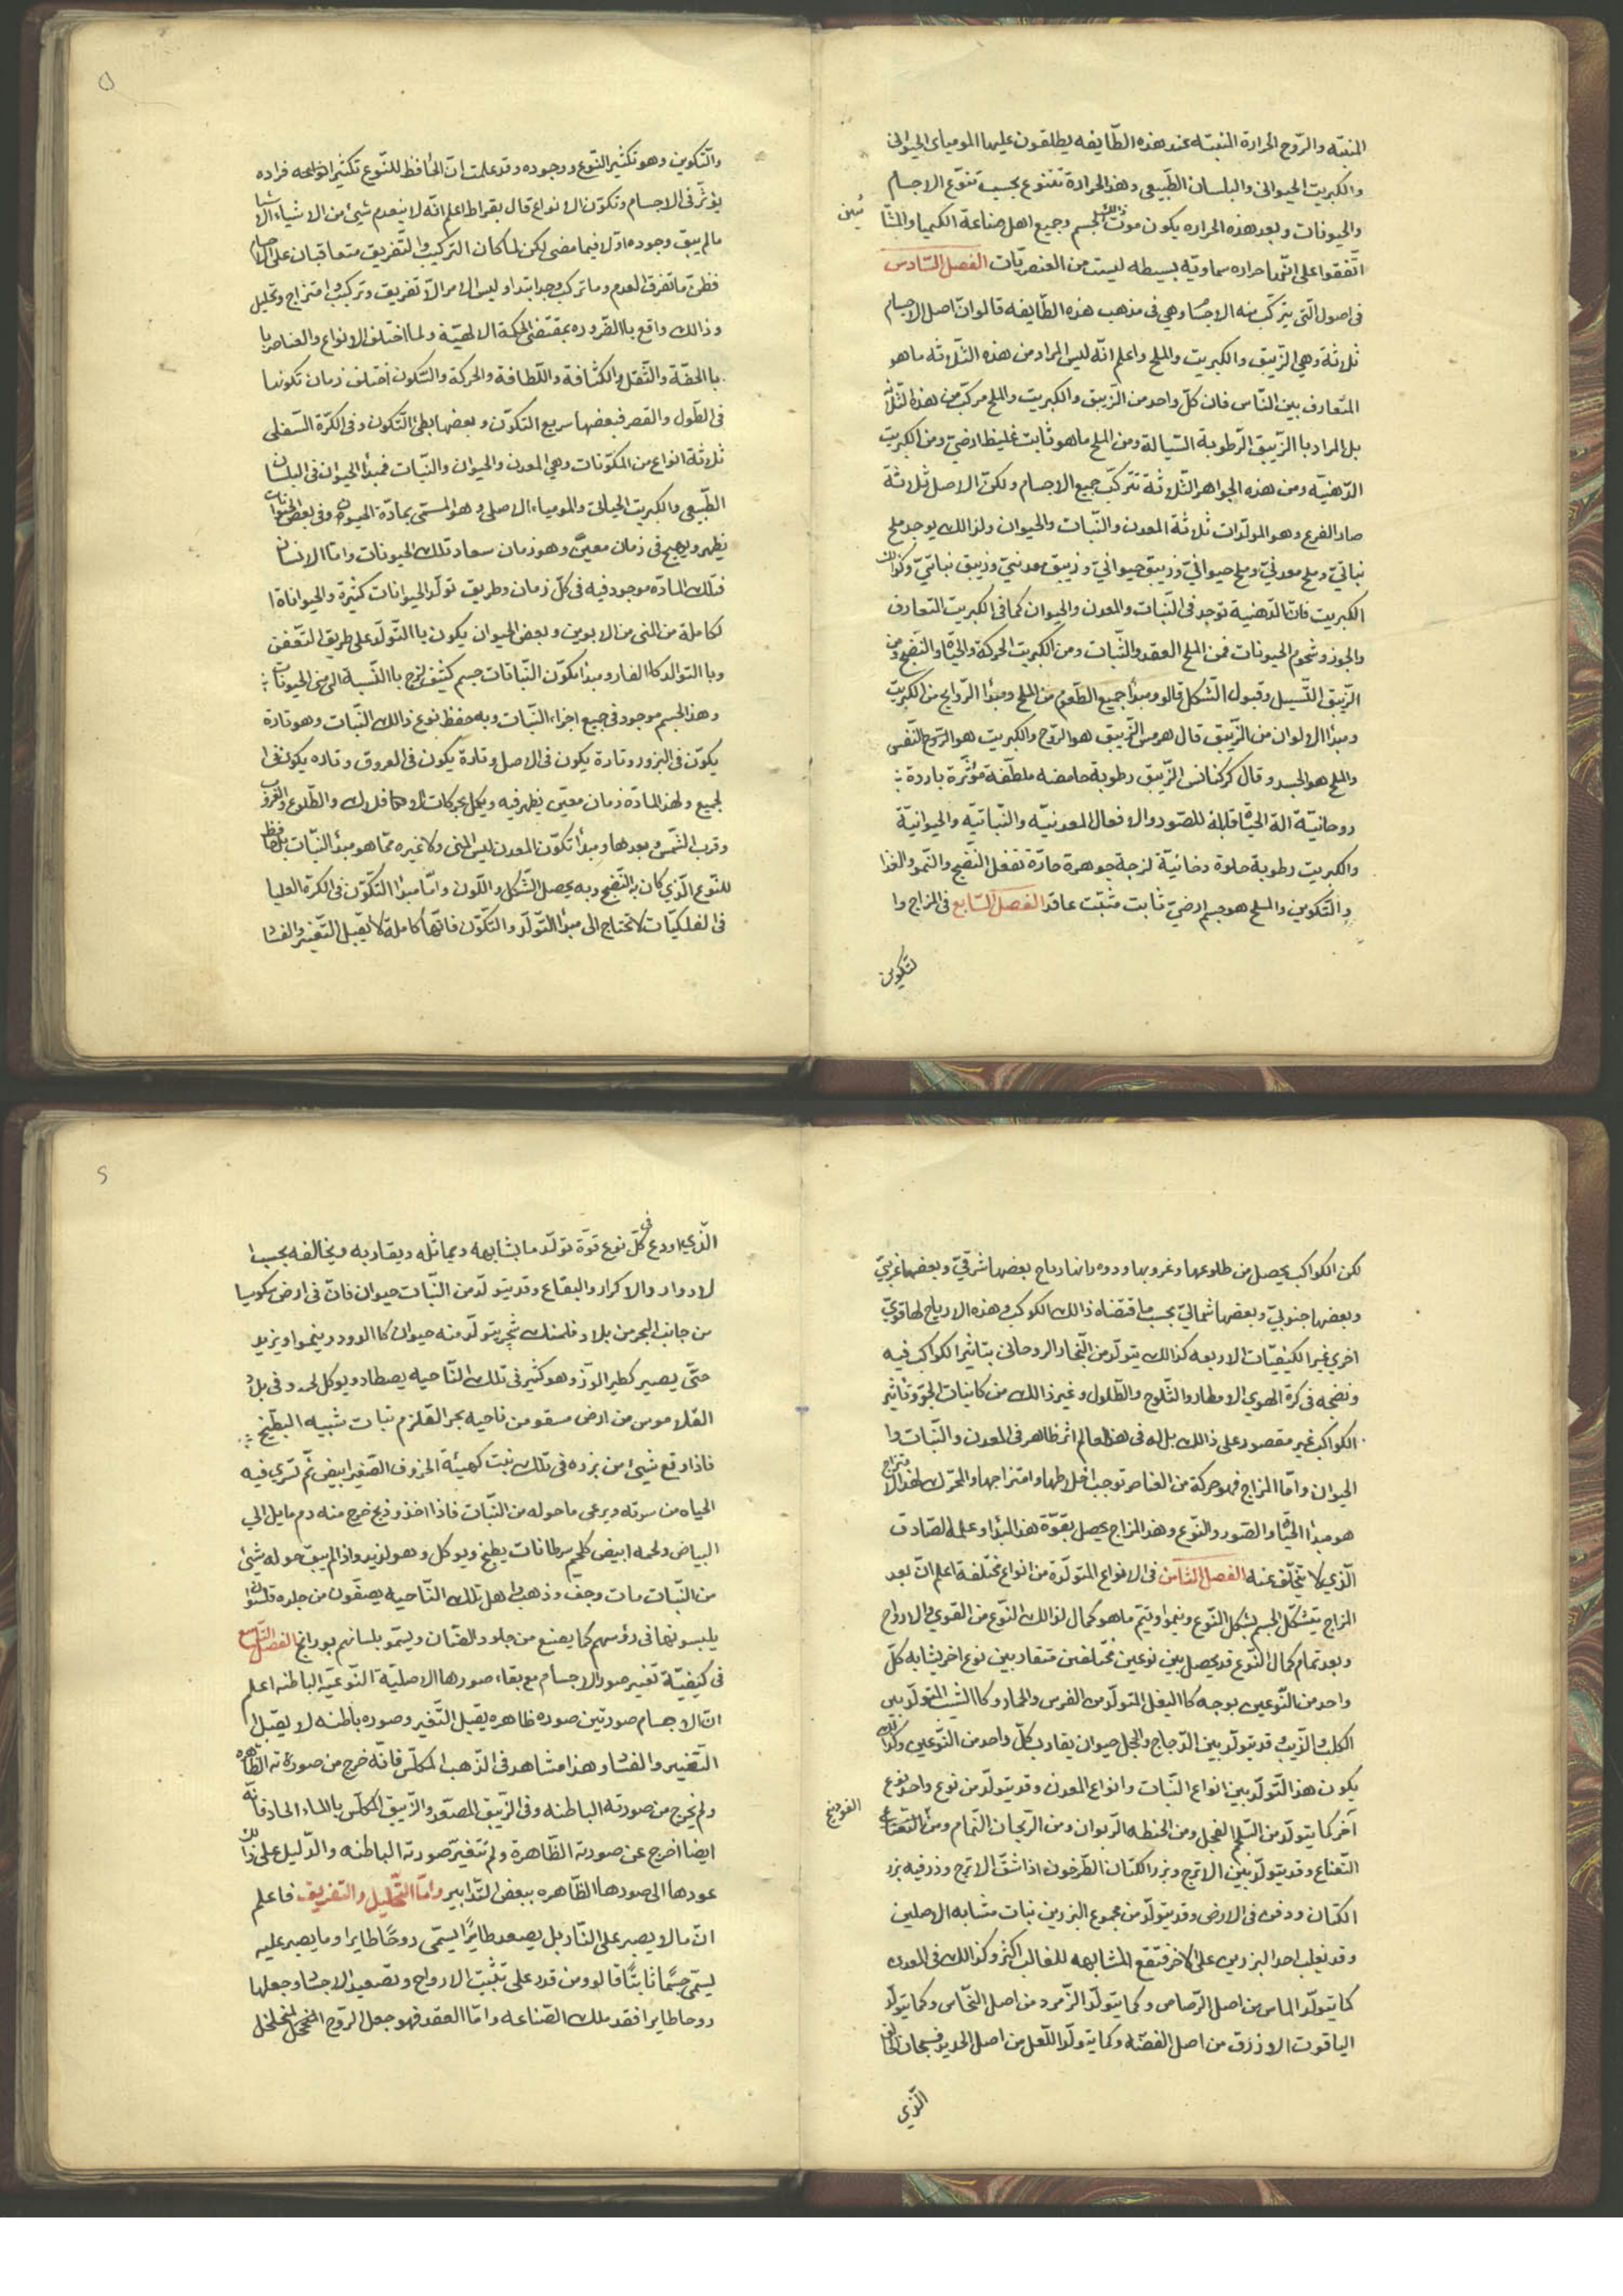 المنبّه والرّوح الحرارة المنبّه عند هذه الطّايفه يطلقون عليها المومياى الحيوانى
والكبريت الحيوانى والبلسان الطّبيعى وهذ الحرارة تتنوع بحسب تنوّع الاجسام
والحيونات وبعد هذه الحراره يكون موت ذلك الجسم وجميع اهل صناعة الكيميا والمشّا
ئين
اتّفقوا على انّها حراره سماويّه بسيطه ليست من العنصريّات الفصل السّادس
فى اصول الّتى يتركّب منه الاجسا وهي فى مذهب هذه الطّايفه قالوا انّ اصل الاجسام
ثلاثة وهي الزّيبق والكبريت والملح واعلم انّه ليس المراد من هذه الثّلاثه ما هو
المتعارف بين النّاس فان كلّ واحد من الزّيبق والكبريت والملح مركّب من هذه الثّلاثه
بل المراد با الزّيبق الرّطوبة السّيالة ومن الملح ما هو ثابت غليظ ارضيّ ومن الكبريت
الدّهنيّة ومن هذه الجواهر الثّلاثة تتركّب جميع الاجسام ولكون الاصل ثلاثة
صار الفرع وهو المولّدات ثلاثة المعدن والنّبات والحيوان ولذالك يوجد ملح
نباتيّ وملح معدنيّ وملح حيوانيّ وزيبق حيوانيّ وزيبق معدنيّ وزيبق نباتيّ وكذالك
الكبريت فانّ الدّهنية توجد فى النّبات والمعدن والحيوان كما فى الكبريت التعارف
والجوز وشحوم الحيونات فمن الملح العقد والثّبات ومن الكبريت الحركة والحيٰاة والنّضج ومن
الزّيبق التّسيل وقبول التّشكّل قالو ومبدأ جميع الطّعوم من الملح ومبدؤا الرّوايح من الكبريت
ومبدؤا الالوان من الزّيبق قال هرمس الزّيبق هو الرّوح والكبريت هو الرّوح النّفس
والملح هو الجسد وقال كركنانس الزّيبق رطوبة حامضه ملطّفة مؤثّرة باردة
روحانيّة الة الحيٰاة قابلة للصّور والافعال المعدنيّه والنّباتيّه والحيوانيّة
والكبريت رطوبة حلوة دخانيّة لزجة جوهرة حارّة تفعل النّضج والنّمو والغذا
والتّكوين والملح هو جسم ارضيّ ثابت مثبّت عاقد الفصل السّابع فى المزاج وا
لتّكوين
والتّكوين وهو تكثير النّوع ووجوده وقد علمت انّ الحافظ للنّوع تكثير انواعه فراده
يؤثّر فى الاجسام وتكوّن الانواع قال بقراط اعلم انّه لا ينعدم شيئ من الاشياء الا
ما لم يبق وجوده اوّلا فيما مضى لكن لمّا كان التركيب والتّفريق متعاقبان على الاجسام
فظنّ ما تفرّق لعدم وما تركّب وجد ابتدا وليس الامر الاّ تفريق وتركيب وامتزاج وتحليل
وذالك واقع با الضّروره بمقتضى الحكمة الالهيّة ولما اختلف الانواع والعناصر با
با الخفّة والثّقل والكثافة واللّطافة والحركة والسّكون اختلف زمان تكونها
فى الطّول والقصر فبعضها سريع التكوّن وبعضها بطئ التّكون وفى الكرّة السّفلى
ثلاثة انواع من المكوّنات وهي المعدن والحيوان والنّبات فمبدأ الحيوان فى البلسان
الطّبيعى والكبريت الحياتي والمومياء الاصلى وهو المسمّى بمادّة الحيوان وفى بعض الحيوانات
يظهر ويهيج فى زمان معيّن وهو زمان سعاد تلك الحيونات وامّا الانسان
فتلك المادّه موجود فيه فى كلّ زمان وطريق تولّد الحيوانات كثيرة والحيواناة ا
لكاملة من المنى من الابوين وبعض الحيوان يكون با التّولّد على طريق التعفّن
وبا التوالد كا الفار ومبدؤا تكوّن النّباتات جسم كثيف لزج با النّسبة الى منى الحيونات
وهذ الجسم موجود فى جميع اجزاء النّبات وبه حفظ نوع ذالك النّبات وهو تارة
يكوّن فى البزور وتارة يكون فى الاصل وتارة يكون فى العروق وتاره يكون فى ا
لجميع ولهذ المادّة زمان معيّن يظهر فيه ويكمل بحركات الافلاك والطّلوع والغروب
وقرب الشّمس وبعدها ومبدؤا تكوّن المعدن ليس المنى ولا غيره ممّا هو مبدؤ النّبات بل حافظ
للنّوع الّذي كان به النّضج وبه يحصل الشّكل واللّون وامّا مبدؤا التّكوّن فى الكرة العليا
فى الفلكيّات لا تحتاج الى مبدؤا التّولّد والتّكوّن فانّها كاملة لا يقبل التّغيير والفسا
لكن الكواكب يحصل من طلوعها وغروبها ودورانها رياح بعضها شرقيّ وبعضها غربيّ
وبعضها جنوبيّ وبعضها شماليّ بحسب ما اقتضاه ذالك الكوكب وهذه الارياح لها قويّ
اخري غير الكيفيّات الاربعه كذالك يتولّد من البّخار الروحانى بتاثير الكواكب فيه
ونضجه فى كرة الهوي الامطار والثّلوج والطّلول وغير ذالك من كاينات الجوّ وتاثير
الكواكب غير مقصور على ذالك بل له فى هذ العالم اثر ظاهر فى المعدن والنّبات وا
الحيوان وامّا المزاج فهو حركة من العناصر توجب اخلاطها وامتزاجها والمحرّك لهذ الامتزاج
هو مبدؤا الحيٰاة والصّور والنّوع وهذ المزاج يحصل بقوّة هذ المبدأ وعلمه الصّادق
الّذي لا يتخلّف عنه الفصل الثّامن فى الانواع المتولّدة من انواع مختلفة اعلم انّ بعد
المزاج يتشكّل الجسم بشكل النّوع وينموا ويتمّ ما هو كمال لذالك النّوع من القوي والارواح
وبعد تمام كمال النّوع قد يحصل بين نوعين مختلفين متقاربين نوع اخر يشابه كلّ
واحد من النّوعين بوجه كا البغل المتولّد من الفرس والحمار وكا الشيب المتولّد بين
الكلب والذّيب وقد يتولّد بين الدّجاج والحجل حيوان يقارب كلّ واحد من النّوعين وكذالك
يكون هذ التّولّد بين انواع النّبات وانواع المعدن وقد يتولّد من نوع واحد نوع
آخر كما يتولّد من السّلجم الفجل ومن الحنطه الزيوان ومن الرّيحان النّمام ومن النّعناع
الفودنج
النّعناع وقد يتولّد بين الاترج وبزر الكتان الطّرخون اذا شقّ الاترج وذر فيه بزر
الكتان ودفن فى الارض وقد يتولّد من مجموع البزرين نبات متشابه الاصلين
وقد تغلب احد البزرين على الاخر فتقع المشابهه للغالب اكثر وكذالك فى المعدن
كما يتولّد الماس من اصل الرّصاص وكما يتولّد الزّمرد من اصل النّحاس وكما يتولّد
الياقوت الازرق من اصل الفضّه وكما يتولّد اللّعل من اصل الحديد فسبحان الخالق
الّذي
الّذي اودع فى كلّ نوع قوّة تولّد ما يشابهه ويماثله ويقاربه ويخالفه بحسب ا
لادوار والاكرار والبقاع وقد يتولّد من النّبات حيوان فانّ فى ارض سكوسيا
من جانب البحر من بلاد فلمنك شجر يتولّد منه حيوان كا الدود وينموا ويزيد
حتّى يصير كطير الوزّ وهو كثير فى تلك النّاحيه يصطاد ويوكل لحمه وفى بلاد
القلاموس من ارض مسقو من ناحية بحر القلزم نبات شبيه البطّيخ
فاذا وقع شيئ من بزره فى تلك نبت كهيئة الخروف الصّغير ابيض ثمّ تسري فيه
الحياه من سرته ويرعى ما حوله من النّبات فاذا اخذ وذبح خرج منه دم مايل الي
البياض ولحمه ابيض كلحم سرطانات يطبخ ويوكل وهو لذيد واذا لم يبق حوله شيئ
من النّبات مات وجفّ وذهب واهل تلك النّاحيه يصنعون من جلده قلنسوة
يلبسونها فى رؤسهم كما يصنع من جلود الضّان ويسمّو بلسانهم بورانج الفصل التاسع
فى كيفيّة تغيير صور الاجسام مع بقاء صورها الاصليّة النّوعيّة الباطنه اعلم
انّ الاجسام صورتين صوره ظاهره يقبل التّغير وصوره باطنه لا يقبل ا
التّغيير والفسا وهذا مشاهد فى الذّهب المكلّس فانّه خرج من صورته الظّاهره
ولم يخرج من صورته الباطنه وفى الزّيبق المصعّد والزّيبق المكلّس با الماء الحاد فانّه
ايضا اخرج عن صورته الظّاهرة ولم تتغيّر صورته الباطنه والدّليل على ذالك
عودها الى صورها الظّاهره ببعض التّدابير وامّا التّحليل والتفريق فاعلم
انّ ما لا يصبر على النّار بل يصعد طايرًا يسمّى روحًا طايرا وما يصبر عليه
يسمّى جسمًا ثابتًا قالو ومن قدر على تثبيت الارواح وتصعيد الاجسا وجعلها
روحا طايرا فقد ملك الصّناعه وامّا العقد فهو جعل الرّوح المنحلّ